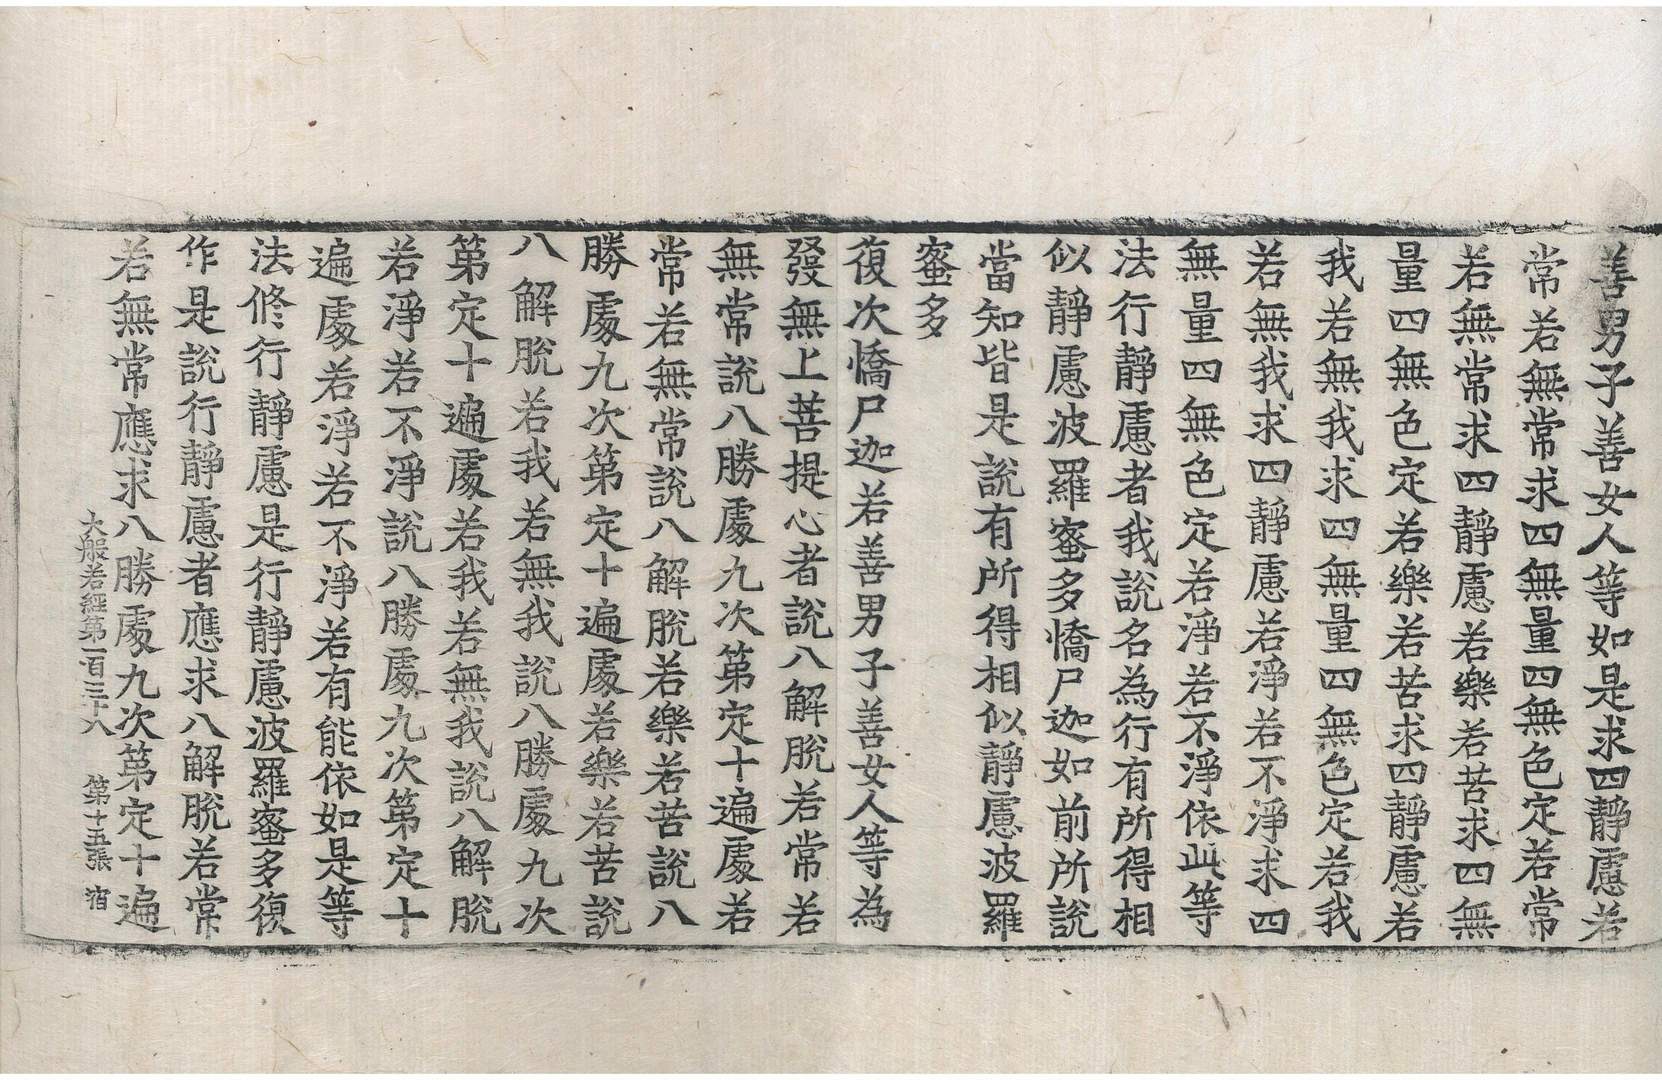 善男子善女人等如是求四靜慮若
常若無常求四無量四無色定若常
若無常求四靜慮若樂若苦求四無
量四無色定若樂若苦求四靜慮若
我若無我求四無量四無色定若我
若無我求四靜慮若淨若不淨求四
無量四無色定若淨若不淨依此等
法行靜慮者我說名為行有所得相
似靜慮波羅蜜多憍尸迦如前所說
當知皆是說有所得相似靜慮波羅
蜜多
復次憍尸迦若善男子善女人等為
發無上菩提心者說八解脫若常若
無常說八勝處九次第定十遍處若
常若無常說八解脫若樂若苦說八
勝處九次第定十遍處若樂若苦說
八解脫若我若無我說八勝處九次
第定十遍處若我若無我說八解脫
若淨若不淨說八勝處九次第定十
遍處若淨若不淨若有能依如是等
法修行靜慮是行靜慮波羅蜜多復
作是說行靜慮者應求八解脫若常
若無常應求八勝處九次第定十遍
大般若經第一百三十八 第十五張 宿